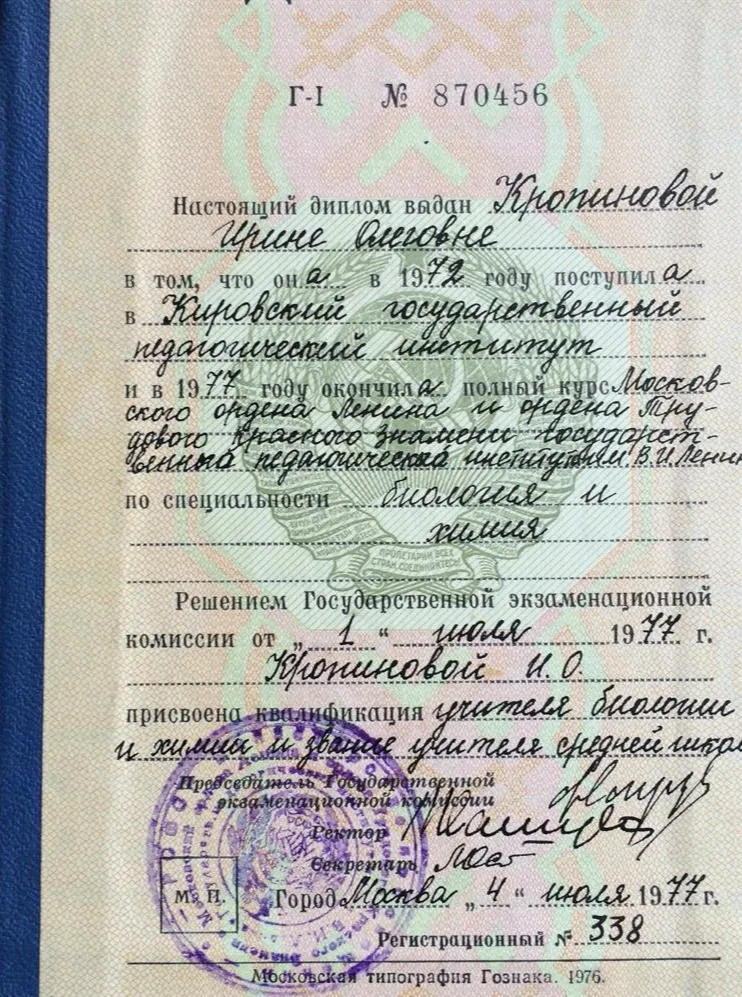 Г-I № 870456
Настоящий диплом выдан Кропиновой
Ирине Олеговне
в том, что она в 1972 году поступила
в Кировский государственный
педагогический институт
и в 1977 году окончила полный курс Москов-
ского ордена Ленина и ордена Тру-
дового Красного Знамени государст-
венный педагогический институт им В.И.Ленин
по специальности биология и
химия
ПРОЛЕТАРИИ ВСЕХ
СТРАН, СОЕДИНЯЙТЕСЬ!
Решением Государственной экзаменационной
комиссии от „ 1 “ июля 1977 г.
Кропиновой И. О.
присвоена квалификация учителя биологии
и химии и звание учителя средней школ
Председатель Государственной
экзаменационной комиссии
Ректор
Секретарь
М. П.
Город Москва „ 4 “ июля 1977 г.
Регистрационный № 338
Московская типография Гознака. 1976.